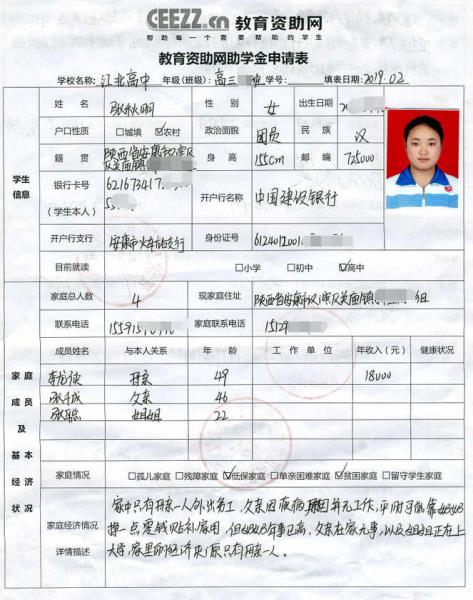 CEEZZ.cn 教育资助网
帮助每一个需要帮助的学生
教育资助网助学金申请表
学校名称: 江北高中 年级(班级): 高三 班 学号: 填表日期: 2019.02
学生信息
姓名 张秋明 性别 女 出生日期 2
户口性质 □城填 ☑农村 政治面貌 团员 民族 汉
籍贯 陕西省安康市汉滨区关庙镇 身高 155cm 邮编 725000
银行卡号 (学生本人) 621673417 55 开户行名称 中国建设银行
开户行支行 安康市火车站支行 身份证号 6124012001
目前就读 □小学 □初中 ☑高中
家庭成员及基本经济状况
家庭总人数 4 现家庭住址 陕西省安康市汉滨区关庙镇 组
联系电话 15591 家庭联系电话 15129
成员姓名 与本人关系 年龄 工作单位 年收入(元) 健康状况
李 母亲 49 18000
张 父亲 46
张 姐姐 22
家庭情况 □孤儿家庭 □残障家庭 ☑低保家庭 □单亲困难家庭 ☑贫困家庭 □留守学生家庭
家庭经济情况详情描述
家中只有母亲一人外出务工,父亲因疾病 原因并无工作,平时可能靠
挣一点零钱贴补家用,但 年事已高,父亲在家无事,以及姐姐正在上
大学,家里的经济来源只有母亲一人。